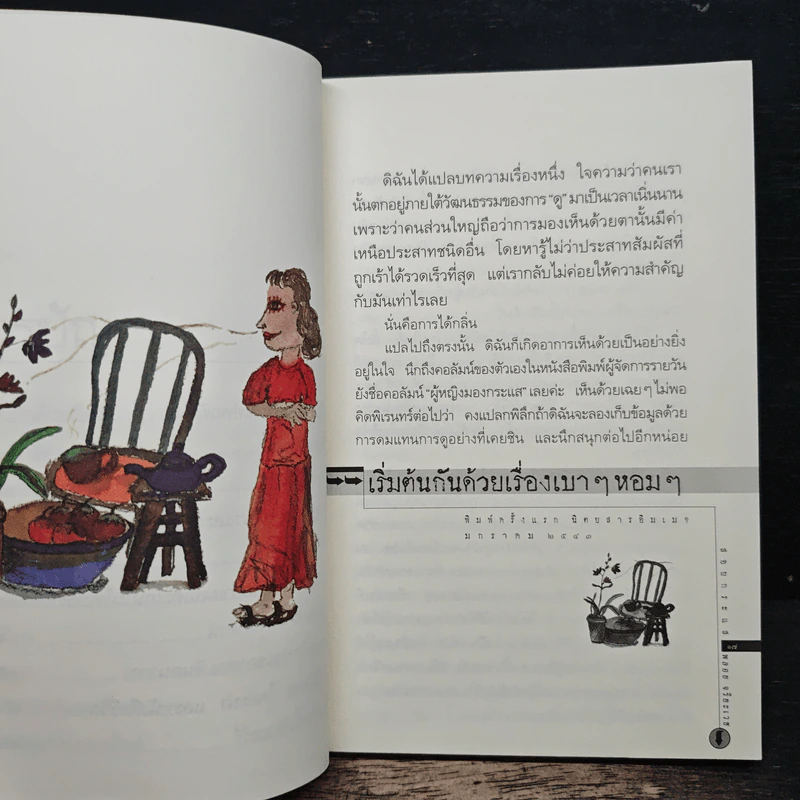 ดิฉันได้แปลบทความเรื่องหนึ่ง ใจความว่าคนเรา
นั้นตกอยู่ภายใต้วัฒนธรรมของการ “ดู” มาเป็นเวลาเนิ่นนาน
เพราะว่าคนส่วนใหญ่ถือว่าการมองเห็นด้วยตานั้นมีค่า
เหนือประสาทชนิดอื่น โดยหารู้ไม่ว่าประสาทสัมผัสที่
ถูกเร้าได้รวดเร็วที่สุด แต่เรากลับไม่ค่อยให้ความสำคัญ
กับมันเท่าไรเลย
นั่นคือการได้กลิ่น
แปลไปถึงตรงนั้น ดิฉันก็เกิดอาการเห็นด้วยเป็นอย่างยิ่ง
อยู่ในใจ นึกถึงคอลัมน์ของตัวเองในหนังสือพิมพ์ผู้จัดการรายวัน
ยังชื่อคอลัมน์ “ผู้หญิงมองกระแส” เลยค่ะ เห็นด้วยเฉย ๆ ไม่พอ
คิดพิเรนทร์ต่อไปว่า คงแปลกพิลึกถ้าดิฉันจะลองเก็บข้อมูลด้วย
การดมแทนการดูอย่างที่เคยชิน และนึกสนุกต่อไปอีกหน่อย
เริ่มต้นกันด้วยเรื่องเบา ๆ หอม ๆ
พิมพ์ครั้งแรก นิตยสารอิมเมจ
มกราคม ๒๕๔๓
๑๗
พลอย จริยะเวช